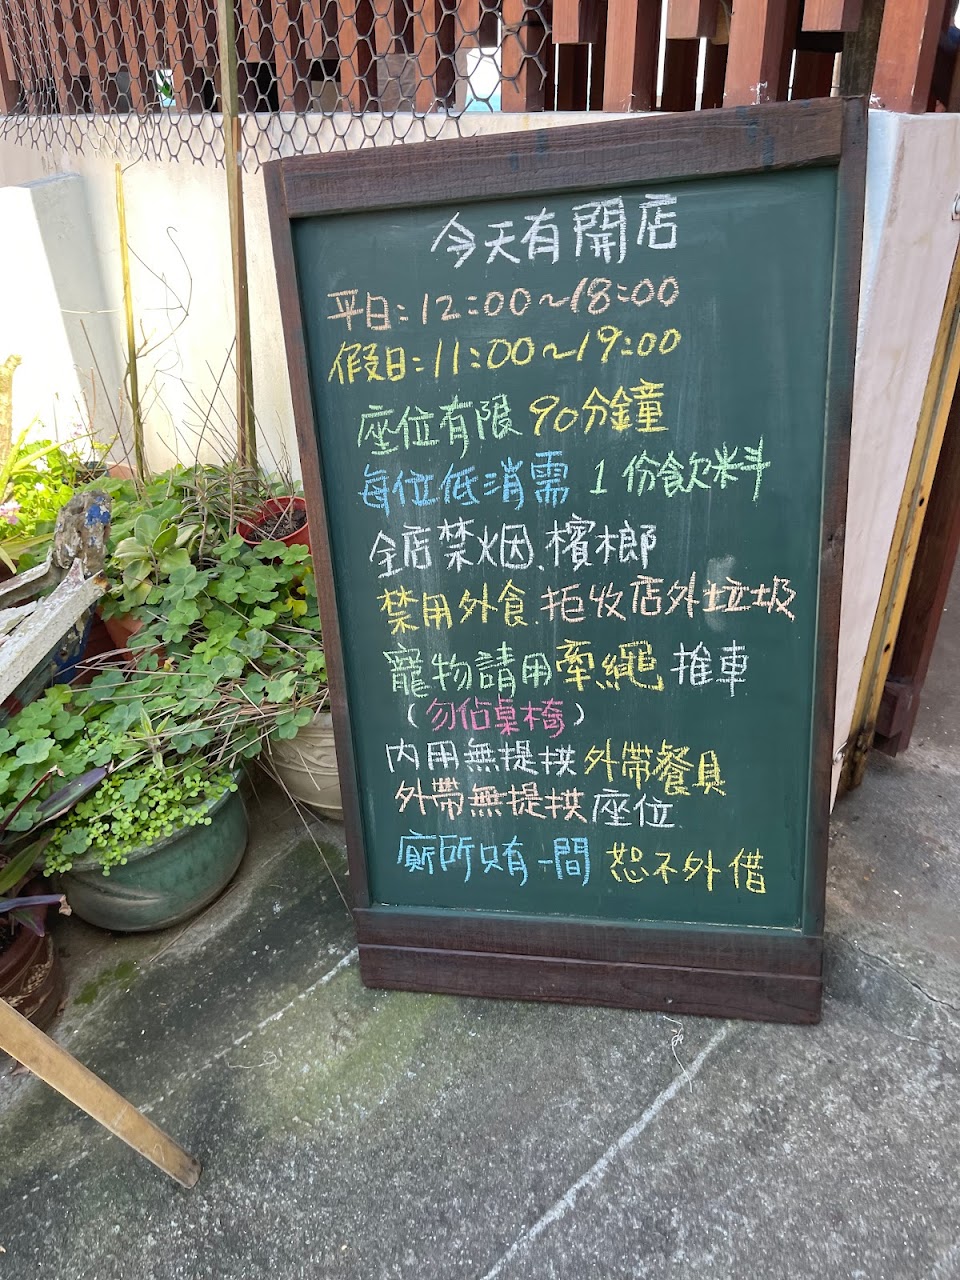 今天有開店
平日：12:00～18:00
假日：11:00～19:00
座位有限 90分鐘
每位低消需 1份飲料
全店禁烟、檳榔
禁用外食、拒收店外垃圾
寵物請用牽繩 推車
（勿佔桌椅）
內用無提拱外帶餐具
外帶無提拱座位
廁所只有一間 恕不外借